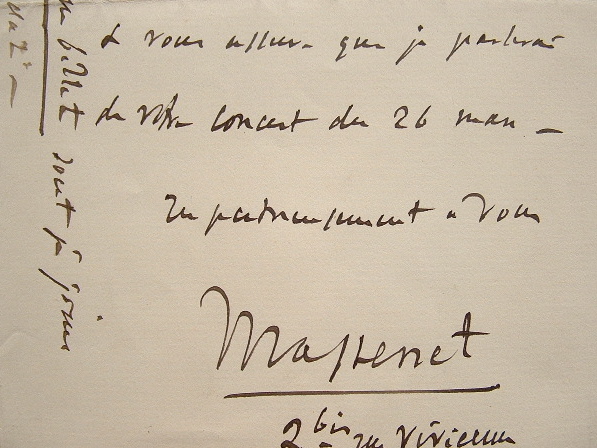 & vous assure que je parlerai
de votre concert du 26 mars –
à vous
Massenet
2 bis rue Vivienne
billet dont je